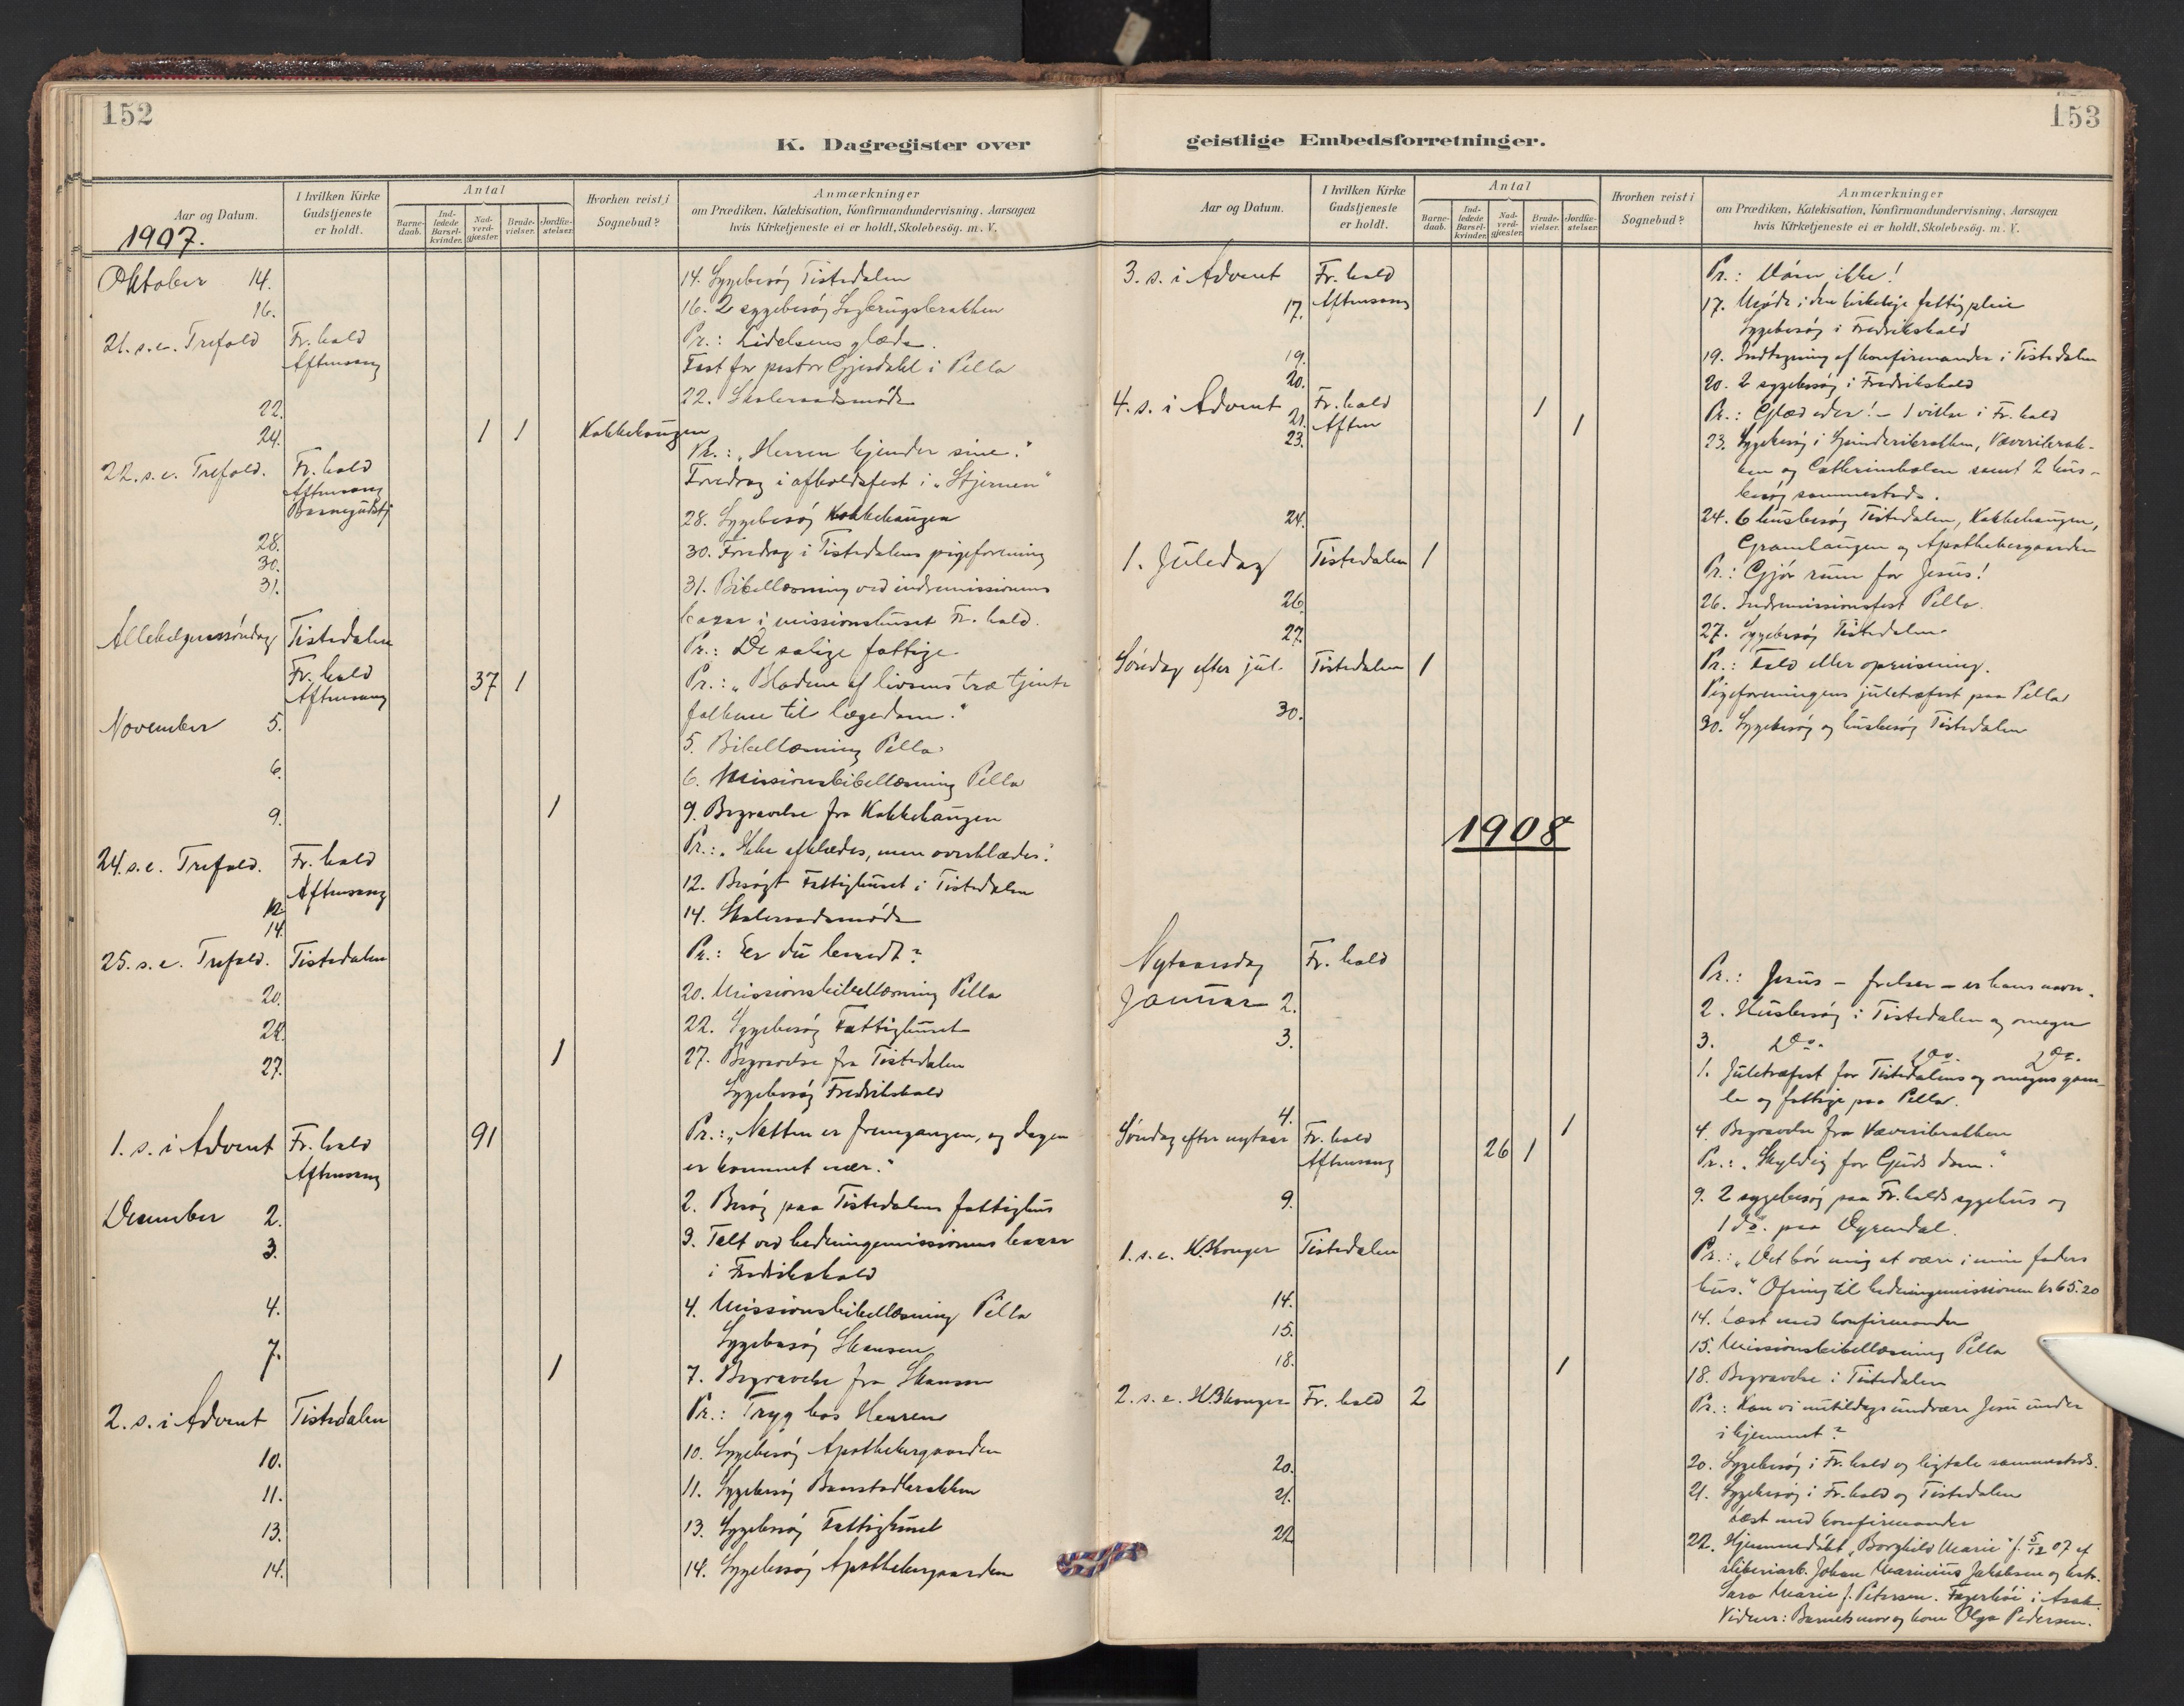 152
K. Dagregister over
Aar og Datum.
1907.
I hvilken Kirke
Gudstjeneste
er holdt.
Antal
Barne-
daab.
Ind-
ledede
Barsel-
kvinder.
Nad-
verd-
gjæster.
Brude-
vielser.
Jordfæ-
stelser.
Hvorhen reist i
Sognebud?
Anmærkninger
om Prædiken, Katekisation, Konfirmandundervisning, Aarsagen
hvis Kirketjeneste ei er holdt, Skolebesög. m. V.
Oktober 14. 14. Sygebesøg Tistedalen
16. 16. 2 sygebesøg
21. s. e. Trefold Fr.hald Pr.: Lidelsens glæde.
Aftensang Fest for pastor Gjesdahl i Pella
22. 22. Skoleraadsmøde
24. 1 1 Kokkehaugen
22. s. e. Trefold. Fr.hald Pr.: "Herren kjender sine."
Aftensang Foredrag i afholdsfest i "Stjernen"
Barnegudstj.
28. 28. Sygebesøg Kokkehaugen
30. 30. Foredrag i Tistedalens pigeforening
31. 31. Bibellæsning ved indremissionens
basar i missionshuset Fr.hald.
Allehelgenssøndag Tistedalen Pr.: De salige fattige
Fr.hald 37 1 Pr.: "Bladene af livsens træ tjente
Aftensang folkene til lægedom."
November 5. 5. Bibellæsning Pella
6. 6. Missionsbibellæsning Pella
9. 1 9. Begravelse fra Kokkehaugen
24. s. e. Trefold. Fr.hald Pr.: "Ikke afklædes, men overklædes."
Aftensang
12. 12. Besøgt Fattighuset i Tistedalen
14. 14. Skoleraadsmøde
25. s. e. Trefold. Tistedalen Pr.: Er du beredt?
20. 20. Missionsbibellæsning Pella
22. 22. Sygebesøg Fattighuset
27. 1 27. Begravelse fra Tistedalen
Sygebesøg Fredrikshald
1. s. i Advent Fr.hald 91 Pr.: "Natten er fremgangen, og dagen
Aftensang er kommet nær."
December 2. 2. Besøg paa Tistedalens fattighus
3. 3. Talt ved hedningemissionens basar
i Fredrikshald
4. 4. Missionsbibellæsning Pella
Sygebesøg Skansen
7. 1 7. Begravelse fra Skansen
2. s. i Advent Tistedalen Pr.: Tryg hos Herren
10. 10. Sygebesøg Apothekergaarden
11. 11. Sygebesøg
13. 13. Sygebesøg Fattighuset
14. 14. Sygebesøg Apothekergaarden
153
geistlige Embedsforretninger.
Aar og Datum.
I hvilken Kirke
Gudstjeneste
er holdt.
Antal
Barne-
daab.
Ind-
ledede
Barsel-
kvinder.
Nad-
verd-
gjæster.
Brude-
vielser.
Jordfæ-
stelser.
Hvorhen reist i
Sognebud?
Anmærkninger
om Prædiken, Katekisation, Konfirmandundervisning, Aarsagen
hvis Kirketjeneste ei er holdt, Skolebesög. m. V.
3. s. i Advent Fr.hald Pr.: ikke!
17. Aftensang 17. Møde i den kirkelige fattigpleie
Sygebesøg i Fredrikshald
19. 19. Indtegning af konfirmander i Tistedalen
20. 20. 2 sygebesøg i Fredrikshald
4. s. i Advent Fr.hald 1 Pr.: Glæd eder! - 1 vielse i Fr.hald
21. Aften
23. 1 23. Sygebesøg i Spinderibrakken, Væveribrak-
ken og Cathrineholm samt 2 hus-
besøg sammesteds.
24. 24. 6 husbesøg Tistedalen, Kokkehaugen,
Apothekergaarden
1. Juledag Tistedalen 1 Pr.: Gjør rum for Jesus!
26. 26. Indremissionsfest Pella.
27. 27. Sygebesøg Tistedalen
Søndag efter jul. Tistedalen 1 Pr.: Fald eller opreisning.
Pigeforeningens juletræfest paa Pella
30. 30. Sygebesøg og husbesøg Tistedalen
1908
Nytaarsdag Fr.hald Pr.: Jesus - frelser - er hans navn.
Januar 2. 2. Husbesøg i Tistedalen og omegn
3. 3. Do. Do. Do.
1. Juletræfest for Tistedalens og omegns gam-
le og fattige paa Pella.
4. 1 4. Begravelse fra Væveribrakken
Søndag efter nytaar Fr.hald 26 1 Pr.: "Skyldig for Guds dom."
Aftensang
9. 9. 2 sygebesøg paa Fr.halds sygehus og
1 do. paa
1. s. e. H.3konger Tistedalen Pr.: "Det bør mig at være i min faders
hus." Ofring til hedningemissionen kr 65.20
14. 14. Læst med konfirmander
15. 15. Missionsbibellæsning Pella
18. 1 18. Begravelse i Tistedalen
2. s. e. H.3konger Fr.hald 2 Pr.: Kan vi nutildags undvære Jesu under
i hjemmet?
20. 20. Sygebesøg i Fr.hald og ligtale sammesteds.
21. 21. Sygebesøg i Fr.hald og Tistedalen
Læst med konfirmander
22. 22. Hjemmedøbt "Borghild Marie" f. 5/12 07 af
sliberiarb. Johan Marinius Jakobsen og hstr.
Sara Marie f. Petersen. Fagerhøi i Asak.
Vidner: Barnets mor og kone Olga Pedersen.